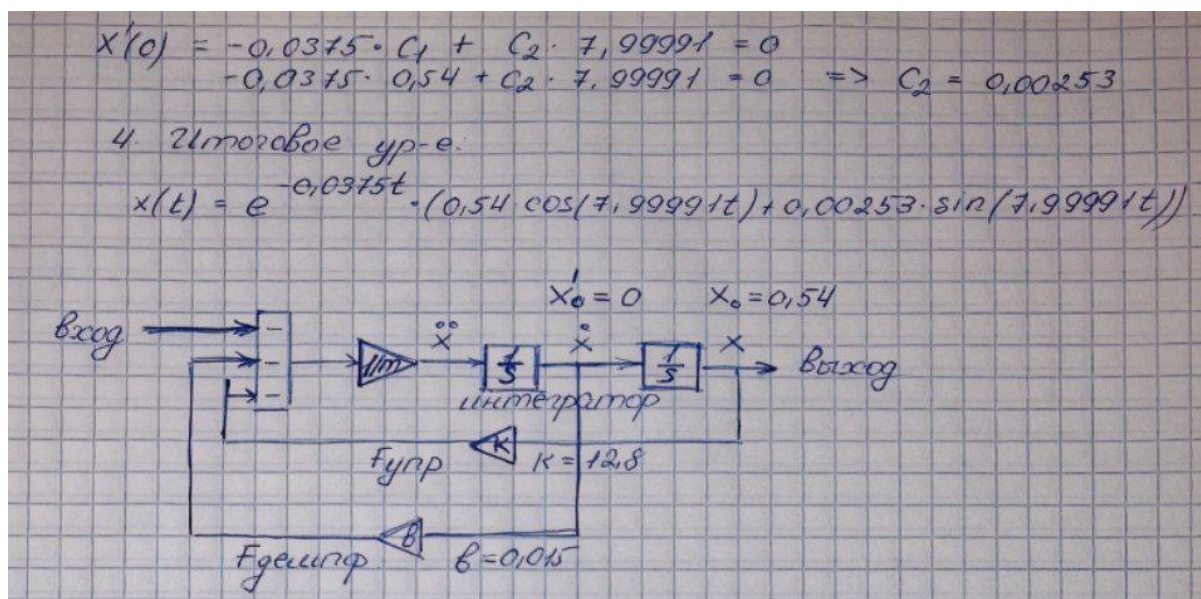 x'(0) = -0,0375 · C₁ + C₂ · 7,99991 = 0
-0,0375 · 0,54 + C₂ · 7,99991 = 0 => C₂ = 0,00253
4. Итоговое ур-е:
x(t) = e^-0,0375t · (0,54 cos(7,99991t) + 0,00253 · sin(7,99991t))
x₀' = 0 x₀ = 0,54
вход - 1/m ẍ 1/s ẋ 1/s x выход
-
-
интегратор
Fупр к к = 12,8
Fдемпф в в = 0,015